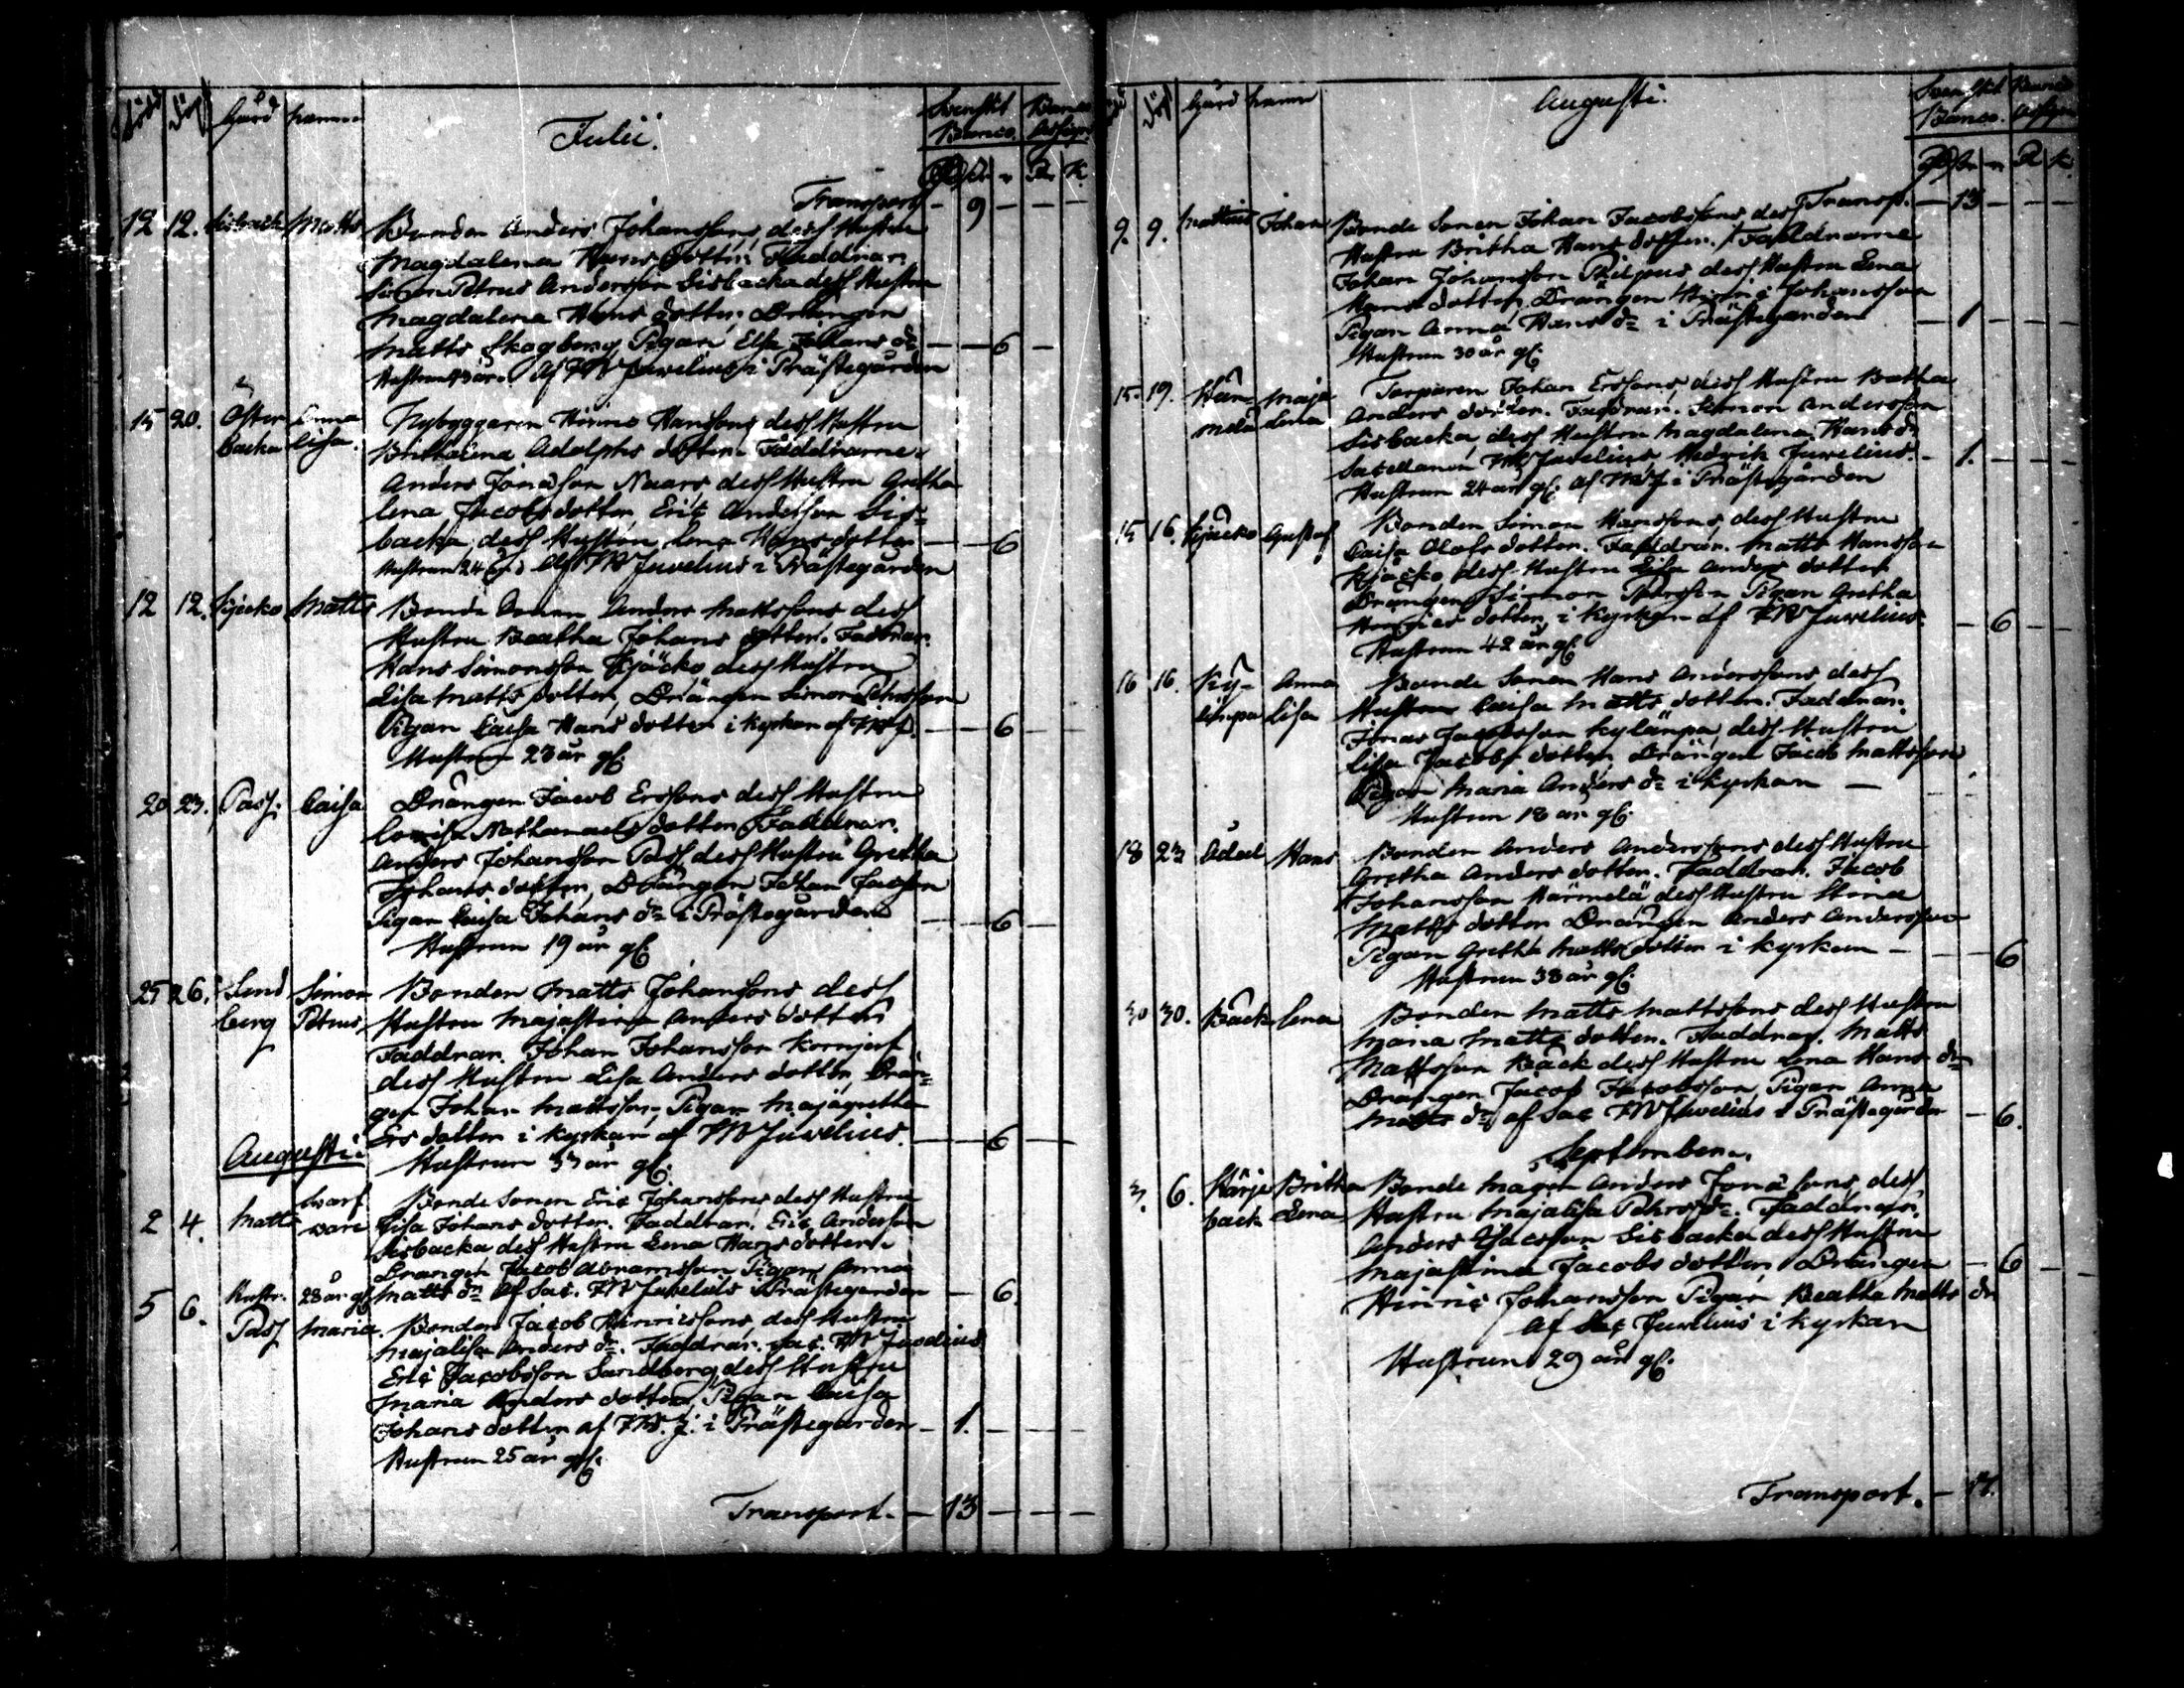 Född Döpt Gård namn Julii. Svenskt Banco. 
Transport - 9 - - -
12 12. Sisback Matts Bonden Anders Johanssons, dess Hustru
Magdalena Hans dotter. Faddrar.
Simon Petrus Andersson Sisbacka dess Hustru
Magdalena Hans dotter, Drängen
Matts Skogberg Pigan Elsa Johans dr - - 6 -
af FW Juvelius i Prästegården
15 20. Öster backa Anna Lisa. Nybyggaren Hinric Hanssons dess Hustru
Brita Lena Adolphs dotter. Faddrarne.
Anders Jonasson Naars dess Hustru Gretha
lena Jacobs dotter Eric Andersson Sis-
backa, dess Hustru, lena Hans dotter - - 6
Hustrun 24 år af FW Juvelius i Prästegården
12 12. Kjäcko Matts Bonde Sonen Anders Mattssons dess
Hustru Beatha Johans dotter. Faddrar.
Hans Simonsson Kjäcko dess Hustru
Lisa Matts dotter, Drängen Simon Pehrsson
Pigan Caisa Hans dotter i kyrkan af FWJ. - - 6 - -
Hustrun 23 år gl.
20 23. Pass. Caisa Drängen Jacob Erssons dess Hustru
Lovisa Nathanaels dotter. Faddrar.
Anders Johansson Pass, dess Hustru Gretha
Johans dotter, Drängen Johan Jacsson
Pigan Caisa Johans dr i Prästegården - - 6 -
Hustrun 19 år gl.
25 26. Sand berg Simon Petrus, Bonden Matts Johanssons, dess
Hustru Maja Stina Anders dotter.
Faddrar. Johan Johansson
dess Hustru Lisa Anders dotter, Drän-
gen Johan Mattsson, Pigan Maja gretha
Ers dotter i kyrkan af FW Juvelius. - - 6 - -
Augusti: Hustrun 33 år gl.
2 4. Matts Bonde Sonen Eric Johanssons dess Hustru
Lisa Johans dotter. Faddrar. Eric Andersson
Sisbacka dess Hustru Lena Hans dotter.
Drängen Jacob Abramsson Pigan Anna
Hustr. 28 år gl. Matts dr af Sac. FW Juvelius i Prästegården - - 6.
5 6. Pass Maria. Bonden Jacob Hinricssons, dess Hustru
Majalisa Anders dr. Faddrar. Sac. FW Juvelius
Eric Jacobsson Sandberg, dess Hustru
Maria Anders dotter, Pigan Caisa
Johans dotter af FW. J. i Prästegården - 1. - - -
Hustrun 25 år gl.
Transport. - 13 - - -
Gård namn Augusti. Svenskt Banco.
Transp. - 13 - - -
9. 9. Johan Bonde Sonen Johan Jacobssons, dess
Hustru Britha Hans dotter. Faddrarne
Johan Johansson Philpus dess Hustru Lena
Hans dotter, Drängen Hinric Johansson
Pigan Anna Hans dr i Prästegården - 1 - - -
Hustrun 30 år gl.
15. 19. Här- melä Maja Lena Torparen Johan Erssons, dess Hustru Beatha
Anders dotter. Faddrar. Simon Andersson
Sisbacka, dess Hustru Magdalena Hans dr
Sacellanen FW Juvelius Hedvich Juvelius. - 1. - - -
Hustrun 24 år gl. af FWJ i Prästegården
15 16. Kjäcko Gustaf Bonden Simon Hanssons, dess Hustru
Caisa Olofs dotter. Faddrar. Matts Hansson
Kjäcko, dess Hustru Lisa Anders dotter
Drängen Simon Pehrsson Pigan Gretha
dotter, i kyrkan af FW Juvelius. - - 6 - -
Hustrun 42 år gl.
16 16. Anna Lisa Bonde Sonen Hans Anderssons dess
Hustru Caisa Matts dotter. Faddrar.
Jonas Jacobsson Kylänpä, dess Hustru
Lisa Jacobs dotter, Drängen Jacob Mattsson
Pigan Maria Anders dr i kyrkan -
Hustrun 18 år gl.
18 23 Hans Bonden Anders Anderssons dess Hustru
Gretha Anders dotter. Faddrar. Jacob
Johansson Härmelä, dess Hustru Stina
Matts dotter Drängen Anders Andersson
Pigan Gretha Matts dotter i kyrkan - - - 6
Hustrun 38 år gl.
30 30. Back Lena Bonden Matts Mattssons dess Hustru
Maria Matts dotter. Faddrar. Matts
Mattsson Back dess Hustru Lena Hans dr
Drängen Jacob Jacobsson, Pigan Anna
Matts dr af Sac FW Juvelius i Prästegården - - 6.
September.
3. 6. Härje back Britha Lena Bonde Magen Anders Jonassons, dess
Hustru Majalisa Pehrs dr. Faddrar.
Anders Isacsson Sisbacka dess Hustru
Majastina Jacobs dotter Drängen - - 6 - -
Hinric Johansson Pigan Beatha Matts dr
af Sac Juvelius i kyrkan
Hustrun 29 år gl.
Transport. - 17.